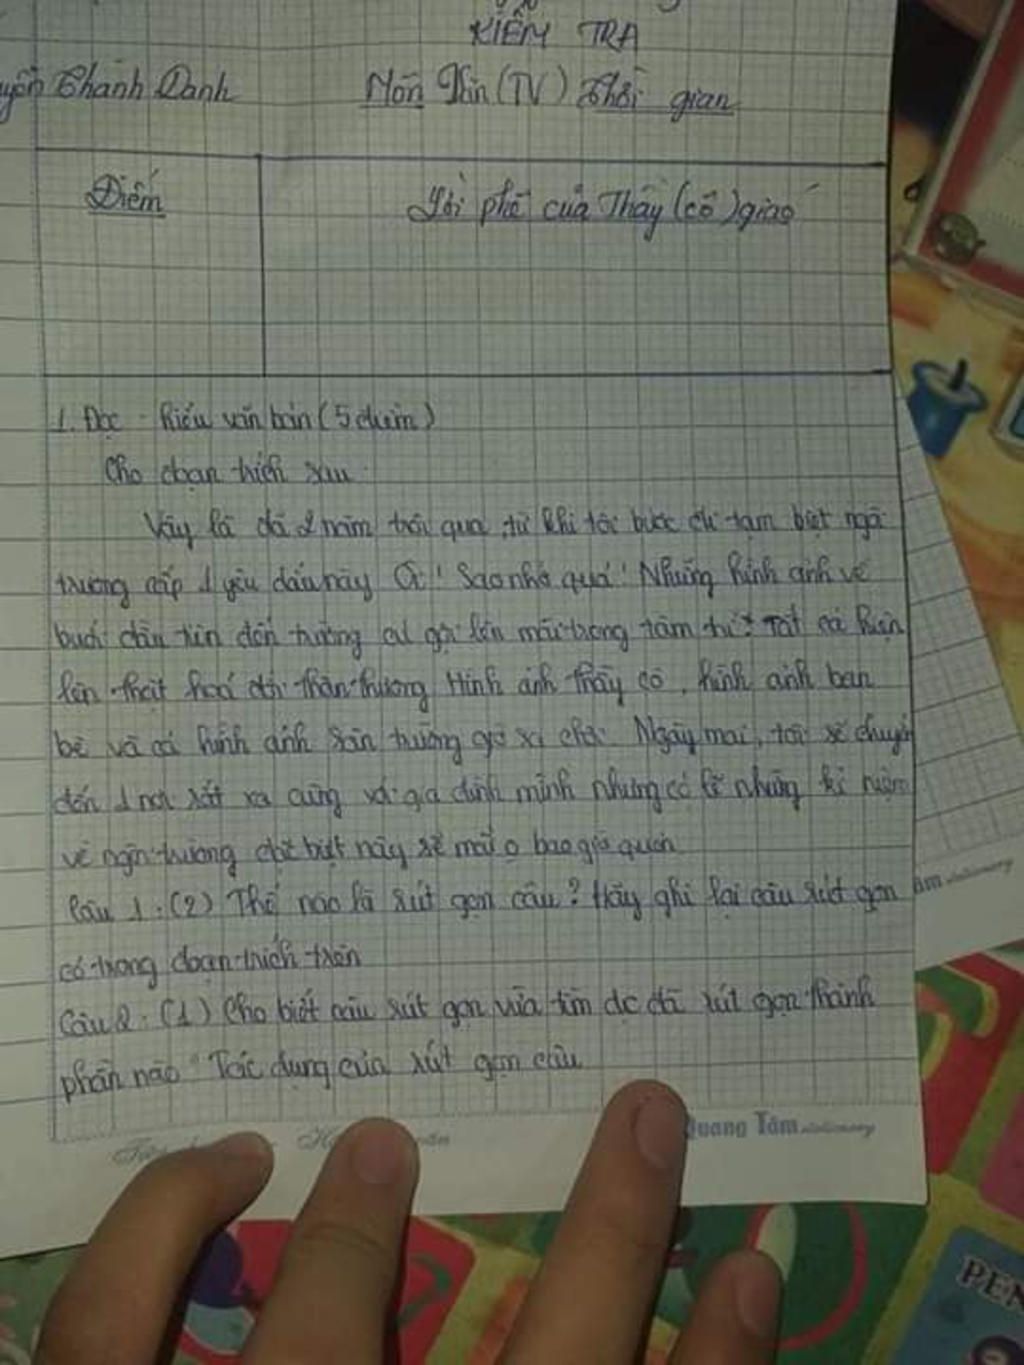 KIỂM TRA
Thành Danh
Môn Văn (TV) Thời gian
Điểm
Lời phê của Thầy (cô) giáo
1. Đọc - hiểu văn bản (5 điểm)
Cho đoạn trích sau
Vậy là đã 2 năm trôi qua, từ khi tôi bước đi tạm biệt ngôi
trường cấp 1 yêu dấu này Ôi! Sao nhớ quá! Những hình ảnh về
buổi đầu tiên đến trường cứ gợi lên mãi trong tâm trí Tất cả hiện
lên thật hoá đỗi thân thương Hình ảnh thầy cô, hình ảnh bạn
bè và cả hình ảnh sân trường giờ ra chơi. Ngày mai, tôi sẽ chuyển
đến 1 nơi rất xa cùng với gia đình mình nhưng có lẽ những kỉ niệm
về ngôi trường đặc biệt này sẽ mãi o bao giờ quên
Câu 1: (2) Thế nào là rút gọn câu? Hãy ghi lại câu rút gọn
có trong đoạn trích trên
Câu 2: (1) Cho biết câu rút gọn vừa tìm dc đã rút gọn thành
phần nào Tác dụng của rút gọn câu
Quang Tâm stationery
PEN